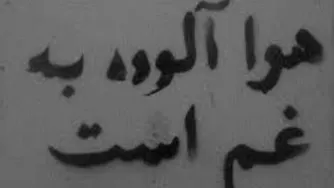 هوا آلوده به
غم است